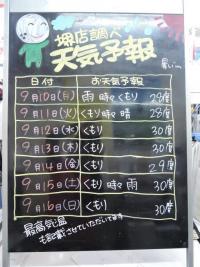 堺店調べ
天気予報
暑い…
日付 お天気予報
9月10日(月) 雨時々くもり 29度
9月11日(火) くもり時々晴 28度
9月12日(水) くもり 30度
9月13日(木) くもり 30度
9月14日(金) くもり 29度
9月15日(土) くもり時々雨 30度
9月16日(日) くもり 30度
最高気温
も記載させていただいてます